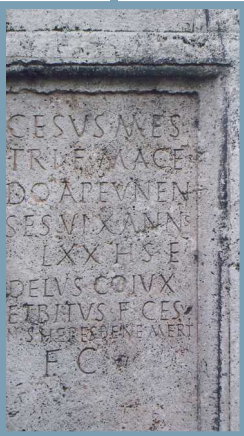 CESVS MES
TRI F MACE
DO APEVNEN
SES VIX ANN
LXX H S E
DELVS COIVX
ET BITVS F CES
VS HERES BENE MERT
F C